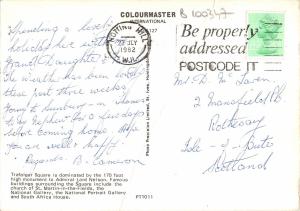 COLOURMASTER
INTERNATIONAL
B 100347
Spending a lovely
holiday here with
Grand daughter
The weather has been lovely
these past three weeks
Going to
to my nephew for a few days
before coming home. Hope
you are well
Regards. B. Cameron
NOTTING HILL
22 JLY
1982
W.11
Be properly
addressed
POSTCODE IT
Mrs D. McLaren
2 Mansfield Pl
Rothesay
Isle-of-Bute
Scotland
Photo Precision Limited, St. Ives, Huntingdon
Trafalgar Square is dominated by the 170 foot
high monument to Admiral Lord Nelson. Famous
buildings surrounding the Square include the
church of St. Martin-in-the-Fields, the
National Gallery, the National Portrait Gallery
and South Africa House.
PT1011